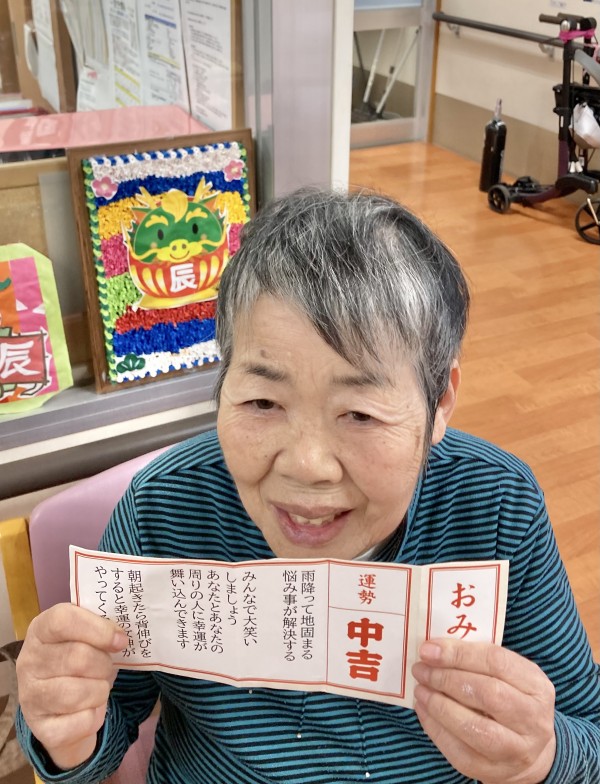 おみ
運勢
中吉
雨降って地固まる
悩み事が解決する
みんなで大笑い
しましょう
あなたとあなたの
周りの人に幸運が
舞い込んできます
朝起きたら背伸びを
すると幸運の女神が
やってく
辰
辰